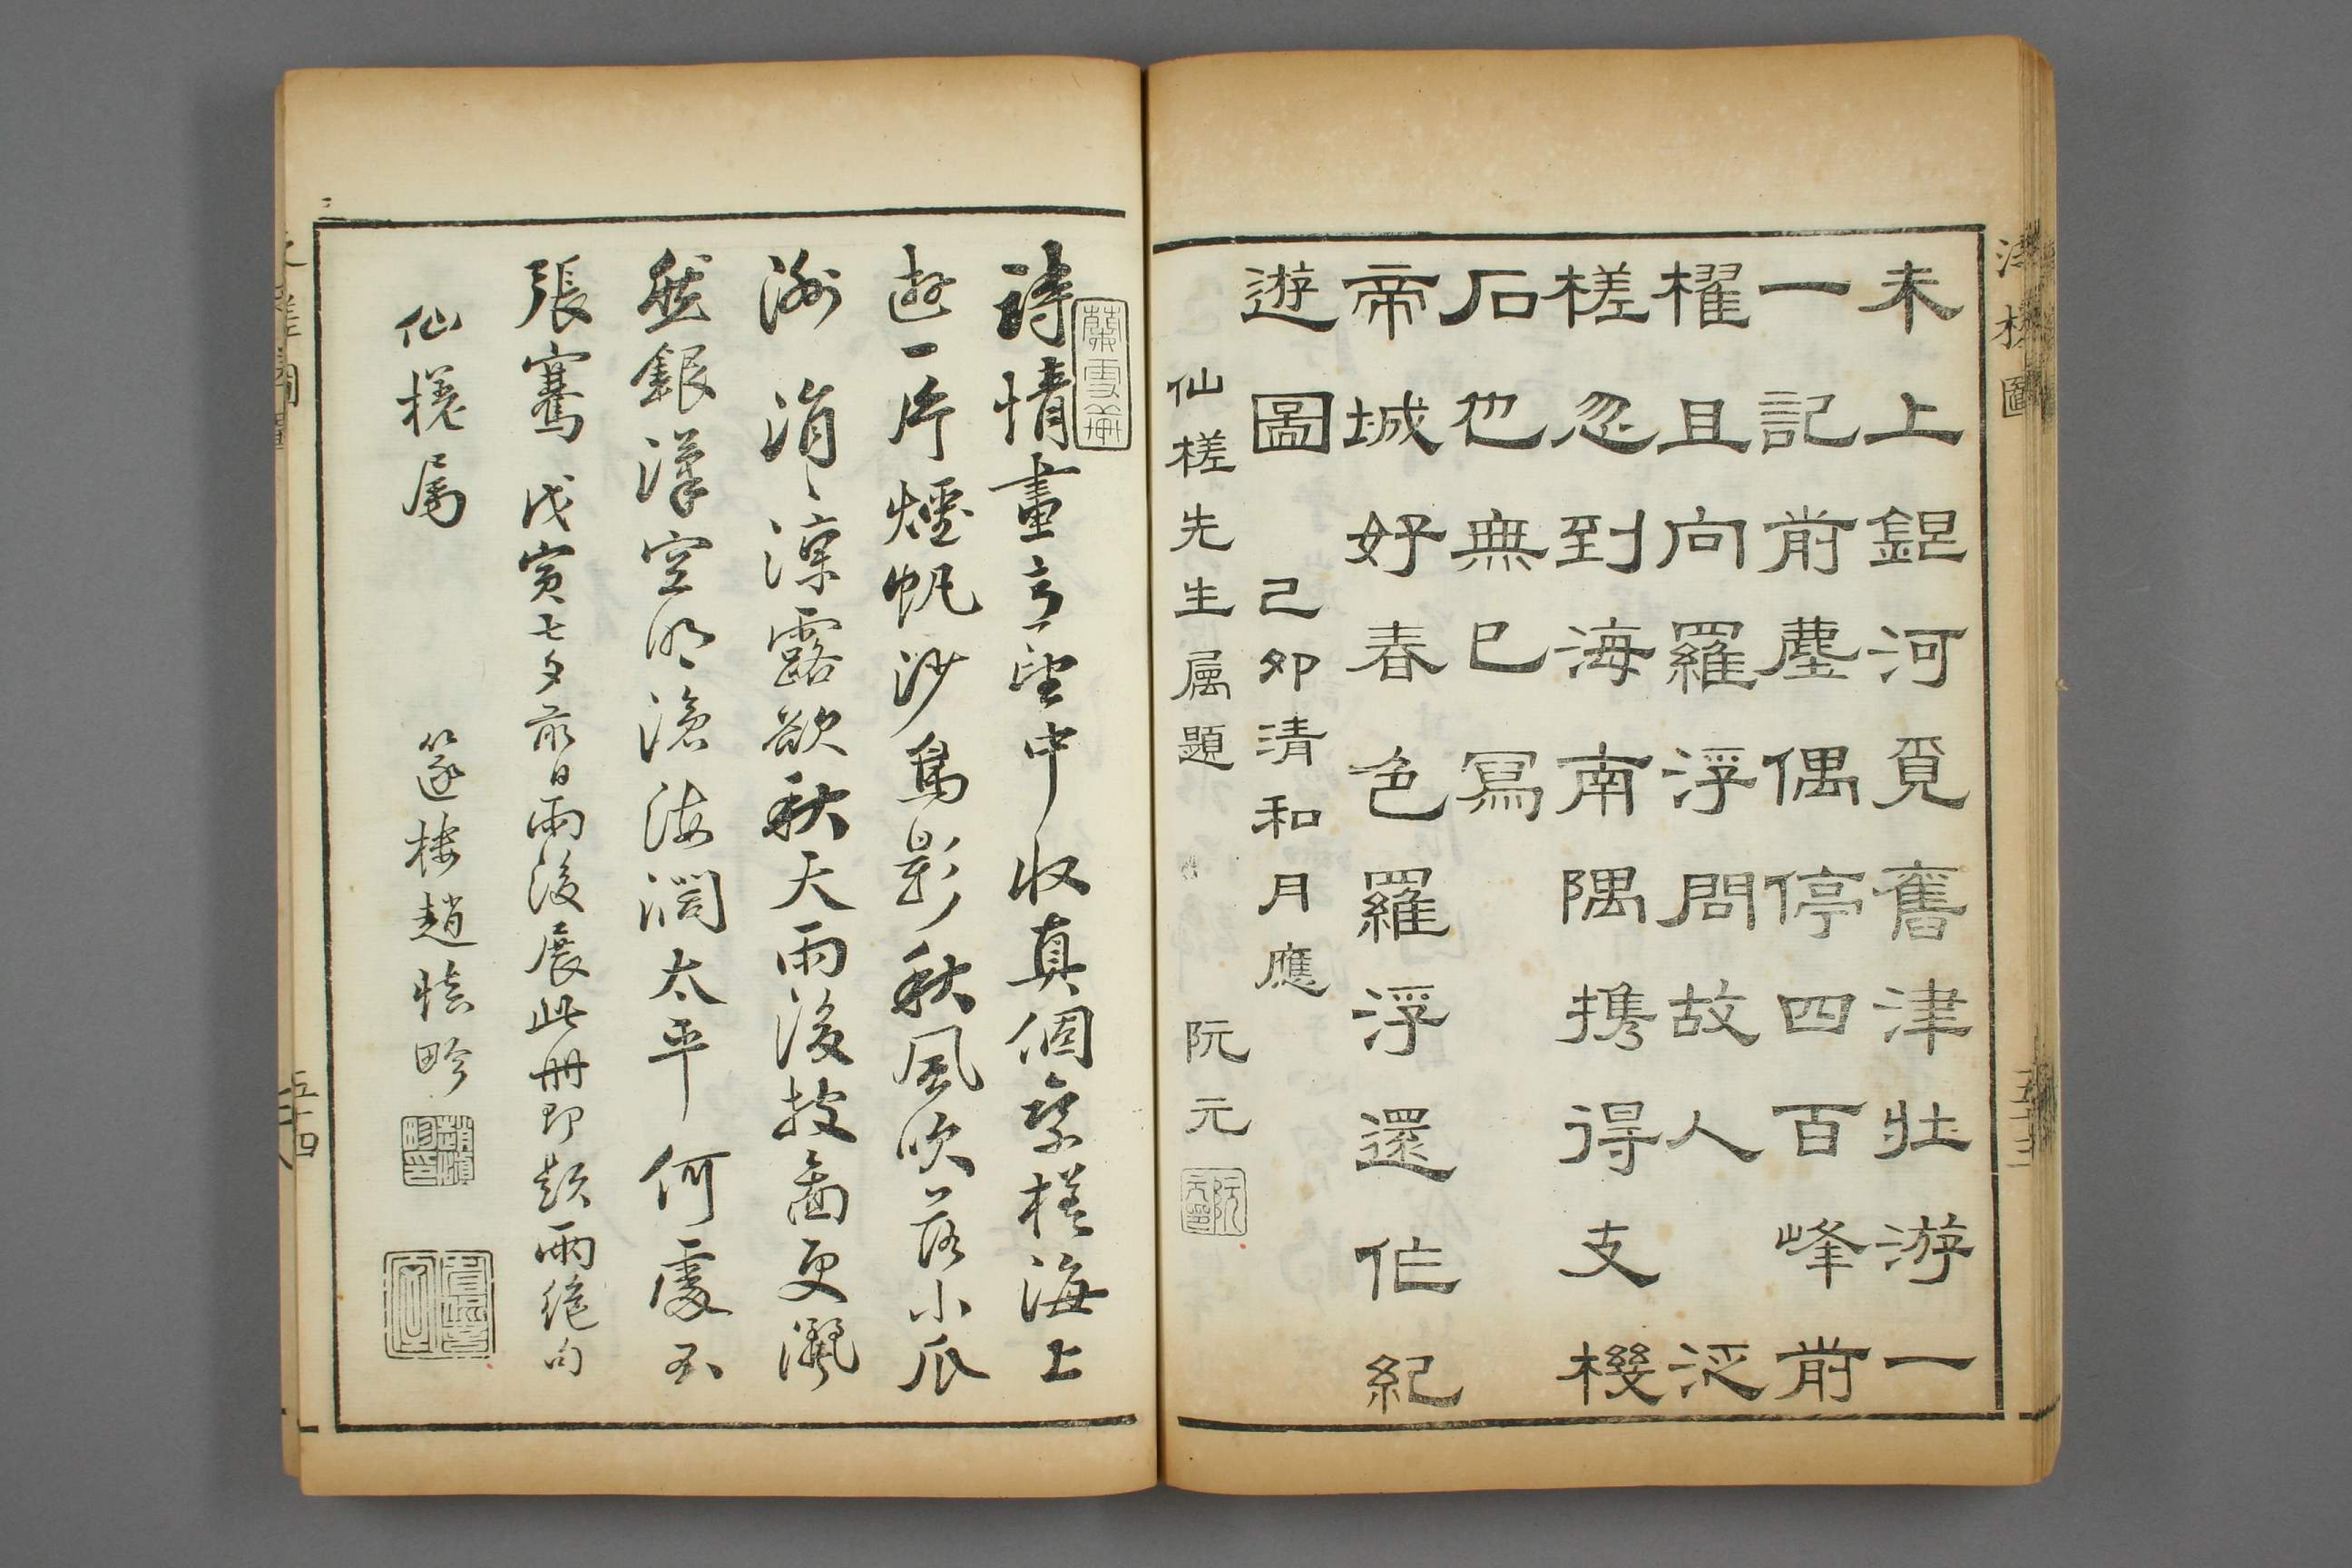 未上銀河覓舊津壯游一
一記前塵偶停四百峰前
櫂且向羅浮問故人 泛
槎忽到海南隅携得支機
石也無已寫
帝城好春色羅浮還作紀
遊圖 己卯清和月應
仙槎先生属題 阮元
阮元印
蘭雪齋
詩情畫意望中收真個乘槎海上
遊一片煙帆沙鳥影秋風吹落小瓜
洲 涓〻涼露欲秋天雨後披圖更灑
然銀漢空明滄海濶太平何處不
張騫 戊寅七夕前日雨後展此冊即題兩絶句
仙槎属 篴樓趙慎畛
趙慎畛印
五十四